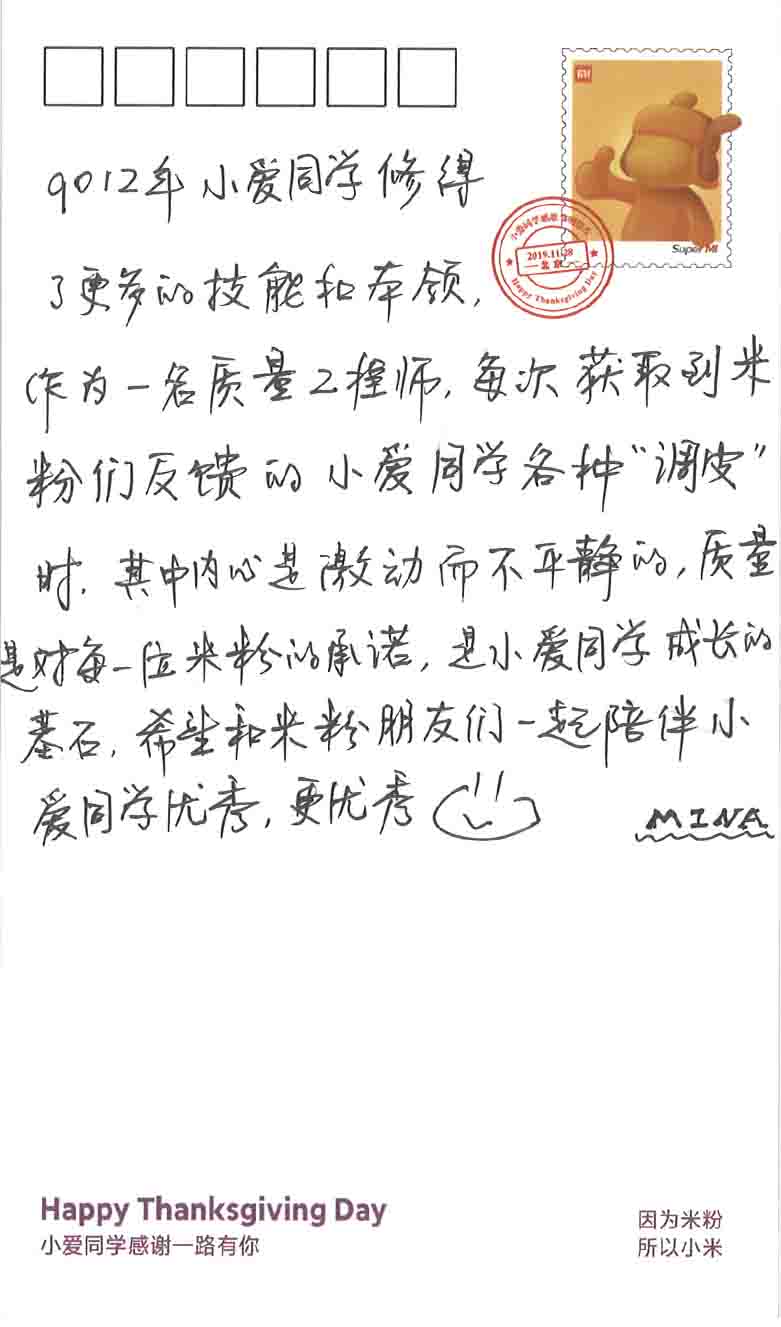 MI
Super MI
小爱同学感谢
2019.11.28
北京
Happy Thanksgiving Day
9012年小爱同学修得
了更多的技能和本领,
作为一名质量工程师,每次获取到米
粉们反馈的小爱同学各种“调皮”
时,其中内心是激动而不平静的,质量
是对每一位米粉的承诺,是小爱同学成长的
基石,希望和米粉朋友们一起陪伴小
爱同学优秀,更优秀
MINA
Happy Thanksgiving Day
小爱同学感谢一路有你
因为米粉
所以小米